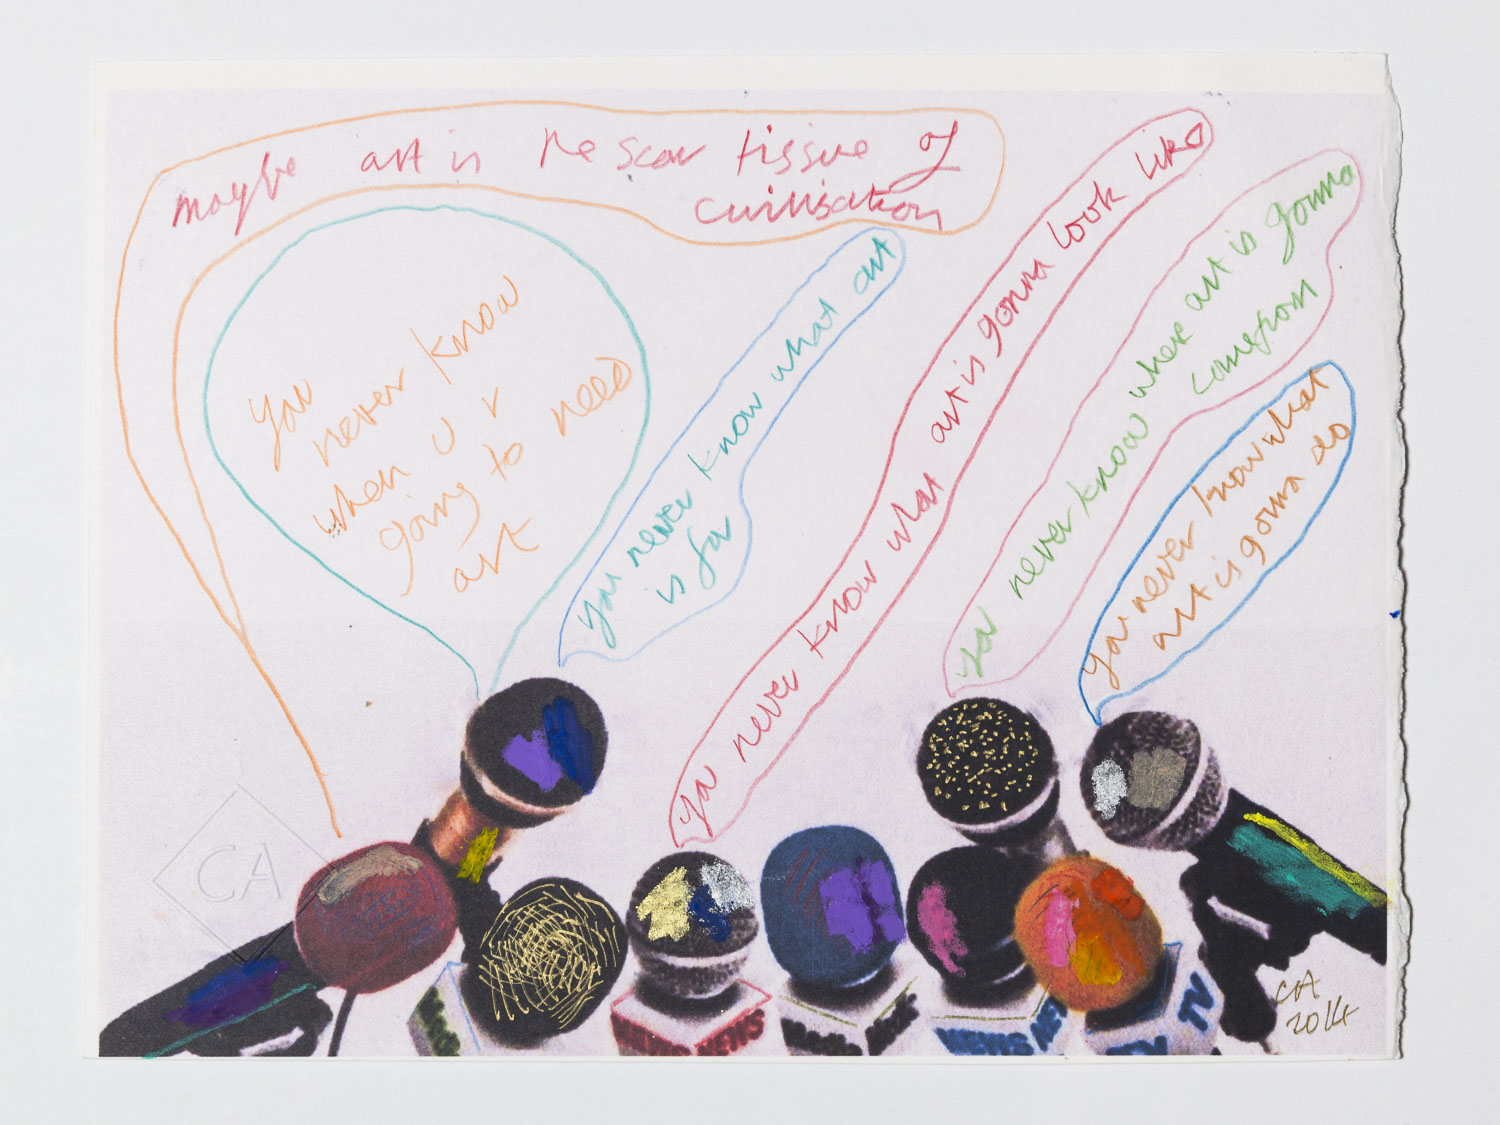 maybe art is the scar tissue of
civilisation
you
never know
when u r
going to need
art
you never know what art
is for
you never know what art is gonna look like
you never know where art is gonna
come from
you never know what
art is gonna do
CA
NEWS
NEWS
NEWS
TV
TV
CA
2014